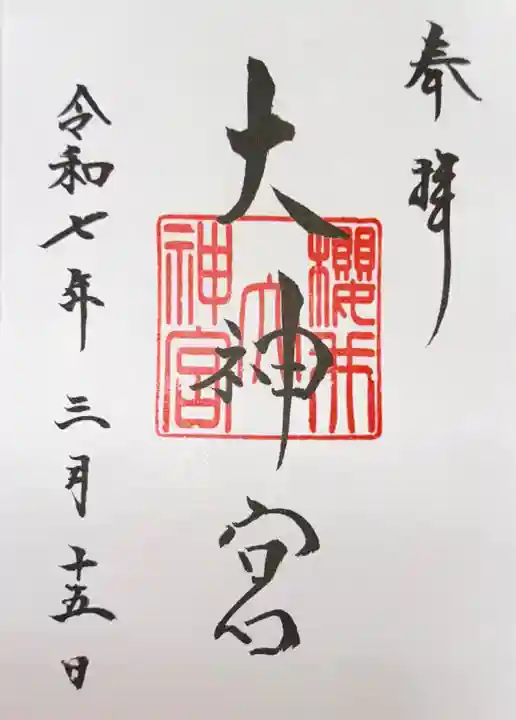 奉拝
大神宮
櫻木
内
神宮
令和七年 三月十五日